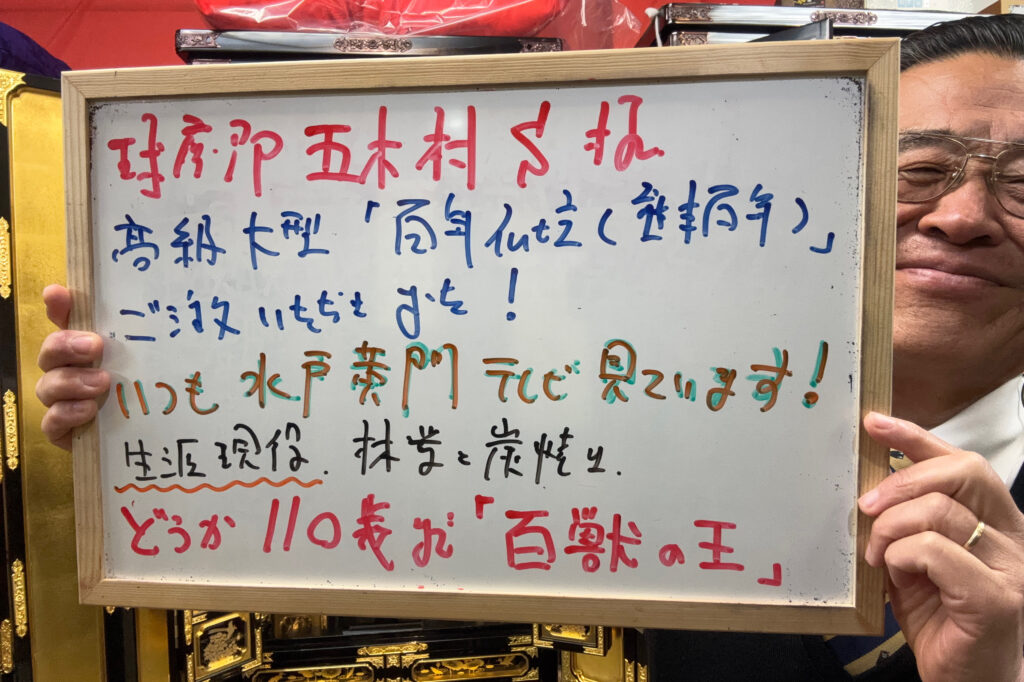 球磨郡 五木村 S 様
高級大型「百年仏壇(新三郎百年)」
ご注文いただきました!
いつも 水戸黄門 テレビ 見ています!
生涯現役. 林業と炭焼き.
どうか 110歳まで「百獣の王」